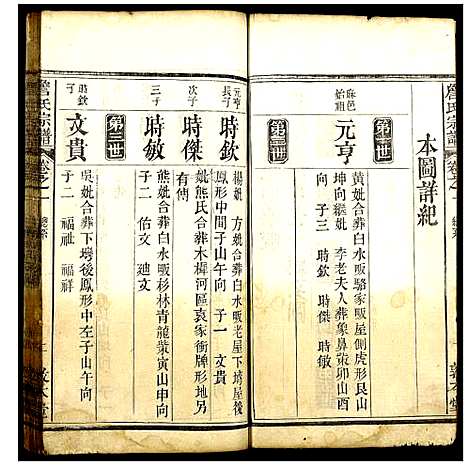 詹氏宗譜
卷之一
總系
敦本堂
本圖詳紀
第一世
麻邑始祖
元亨
黃妣合葬白水畈駱家畈屋側虎形艮山
坤向繼妣 李老夫人葬象鼻策卯山酉
向 子三 時欽 時傑 時敏
第二世
元亨長子
時欽
楊妣 方妣合葬白水畈老屋下塆屋後
鳳形中間子山午向 子一 文貴
次子
時傑
妣熊氏合葬木樨河區袁家衝牌形地另
有傳
三子
時敏
熊妣合葬白水畈杉林青龍策寅山申向
子二 佑文 迪文
第三世
時欽子
文貴
吳妣合葬下塆後鳳形中左子山午向
子二 福祉 福祥
詹氏宗譜
卷之一
總系
敦本堂